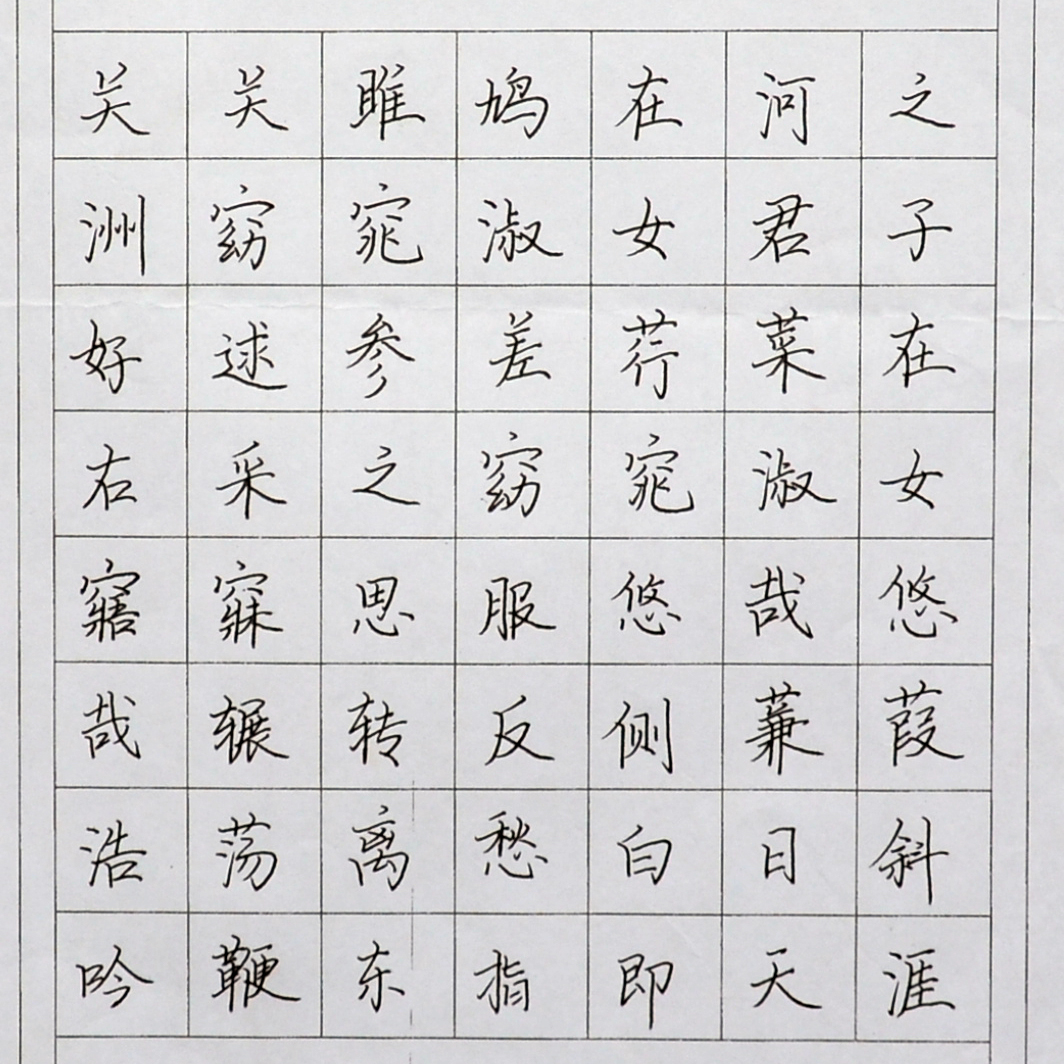 关关雎鸠在河之
洲窈窕淑女君子
好逑参差荇菜在
右采之窈窕淑女
寤寐思服悠哉悠
哉辗转反侧蒹葭
浩荡离愁白日斜
吟鞭东指即天涯